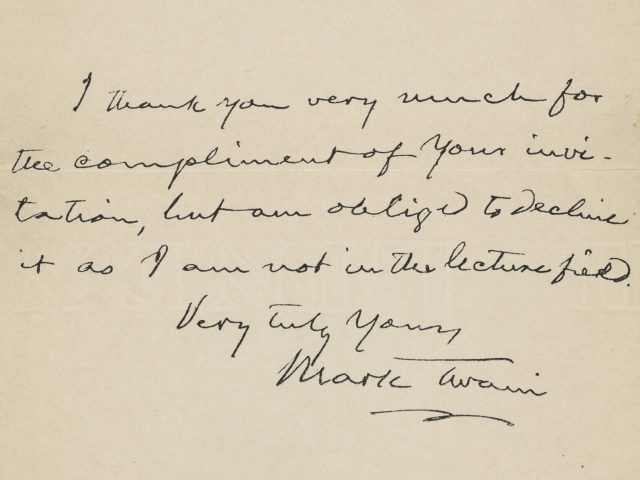 I thank you very much for
the compliment of your invi-
tation, but am obliged to decline
it as I am not in the lecture field.
Very truly yours,
Mark Twain